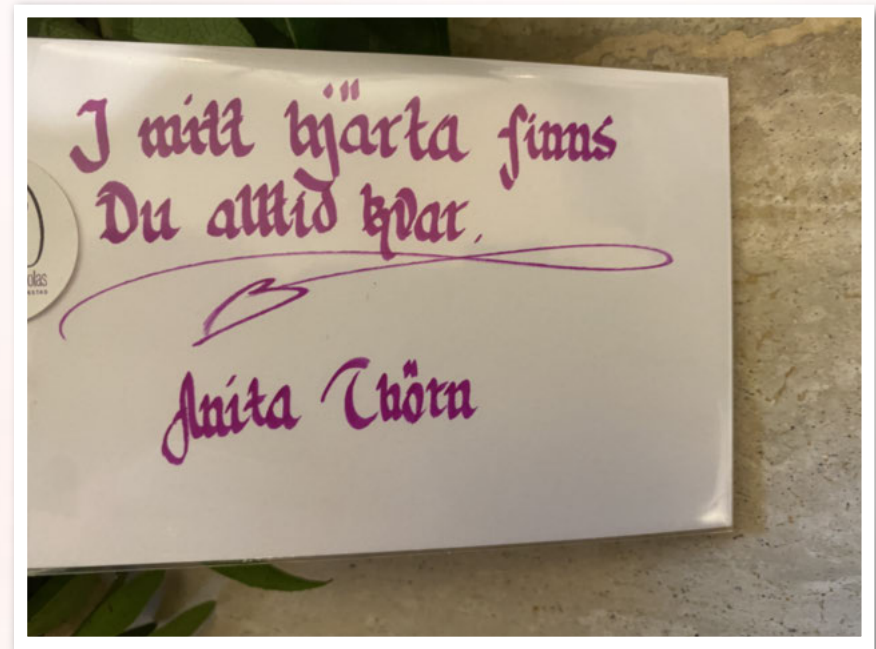 I mitt hjärta finns
Du alltid kvar.
Anita Thörn